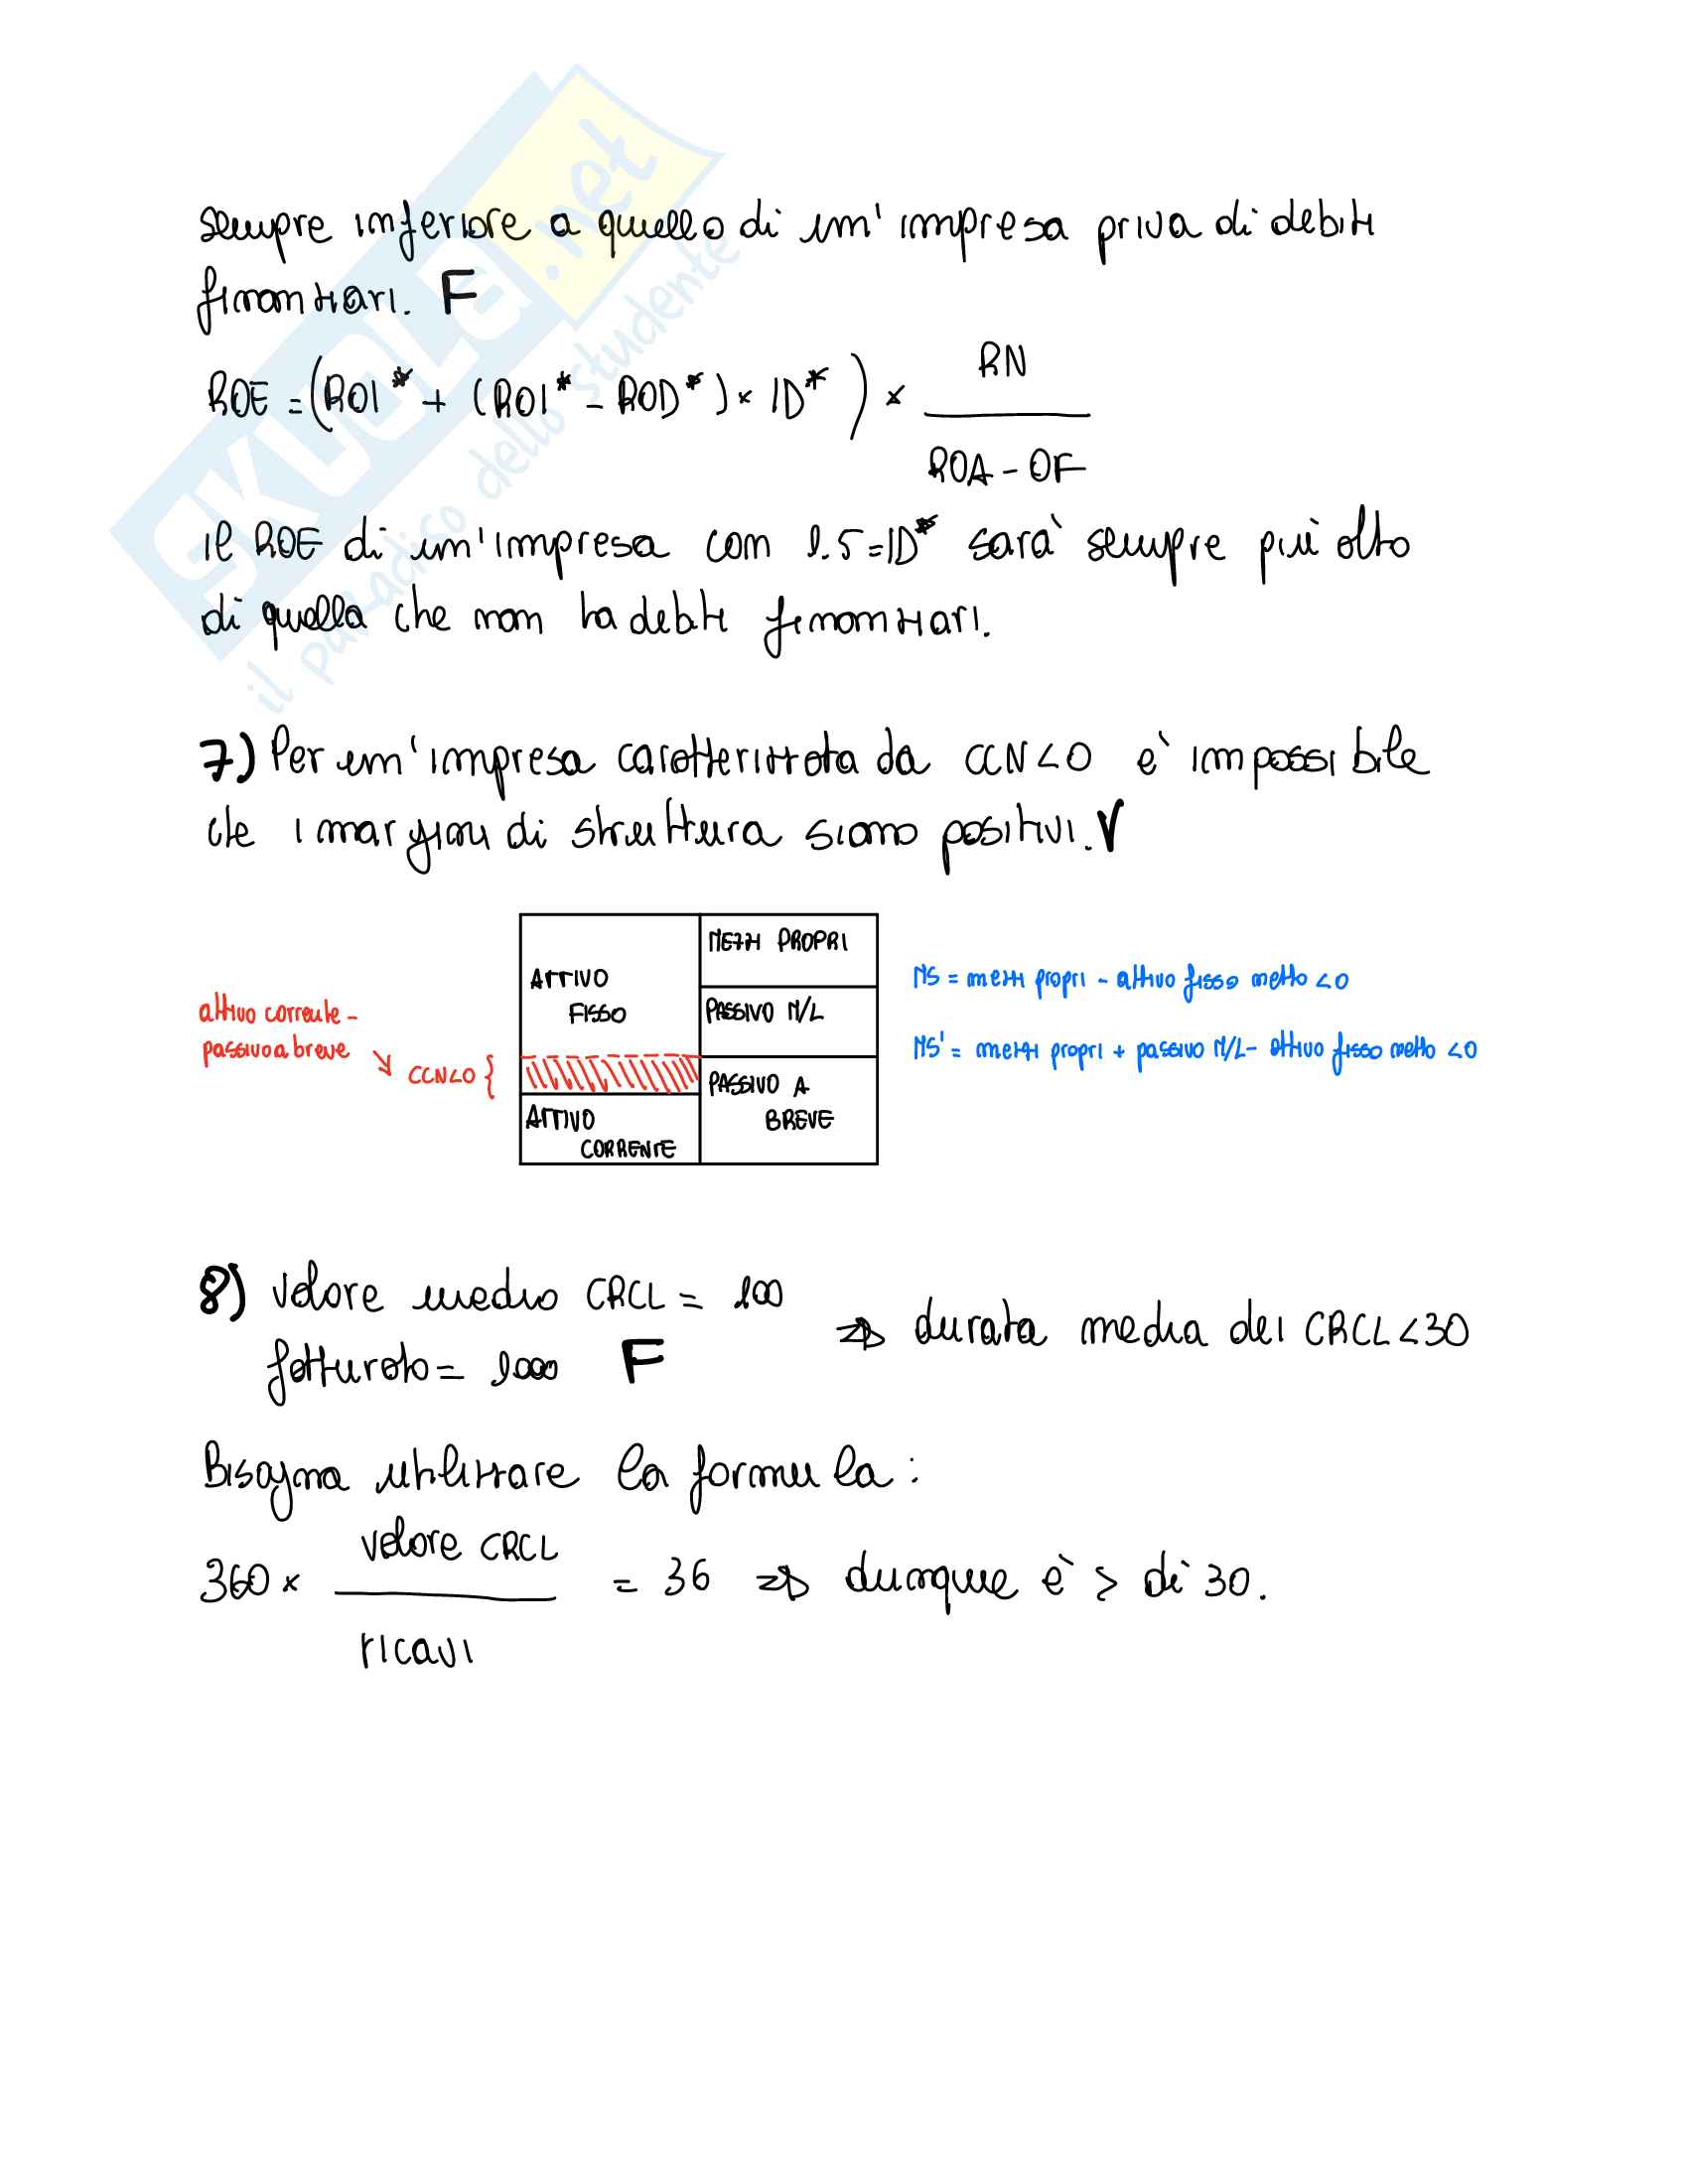 sempre inferiore a quello di un'impresa priva di debiti
finanziari. F
ROE = (ROI* + (ROI* - ROD*) × ID*) × RN
ROA - OF
Il ROE di un'impresa con 1.5 = ID* sarà sempre più alto
di quella che non ha debiti finanziari.
7) Per un'impresa caratterizzata da CCN<0 è impossibile
che i margini di struttura siano positivi. V
MEZZI PROPRI
ATTIVO
FISSO
PASSIVO M/L
MS = mezzi propri - attivo fisso netto <0
MS' = mezzi propri + passivo M/L - attivo fisso netto <0
attivo corrente -
passivo a breve
CCN<0 {
PASSIVO A
BREVE
ATTIVO
CORRENTE
8) Valore medio CRCL = 100
fatturato = 1000 F
⇒ durata media dei CRCL<30
Bisogna utilizzare la formula:
360 × valore CRCL
ricavi
= 36 ⇒ dunque è > di 30.
SKUOLA.net
il paradiso dello studente